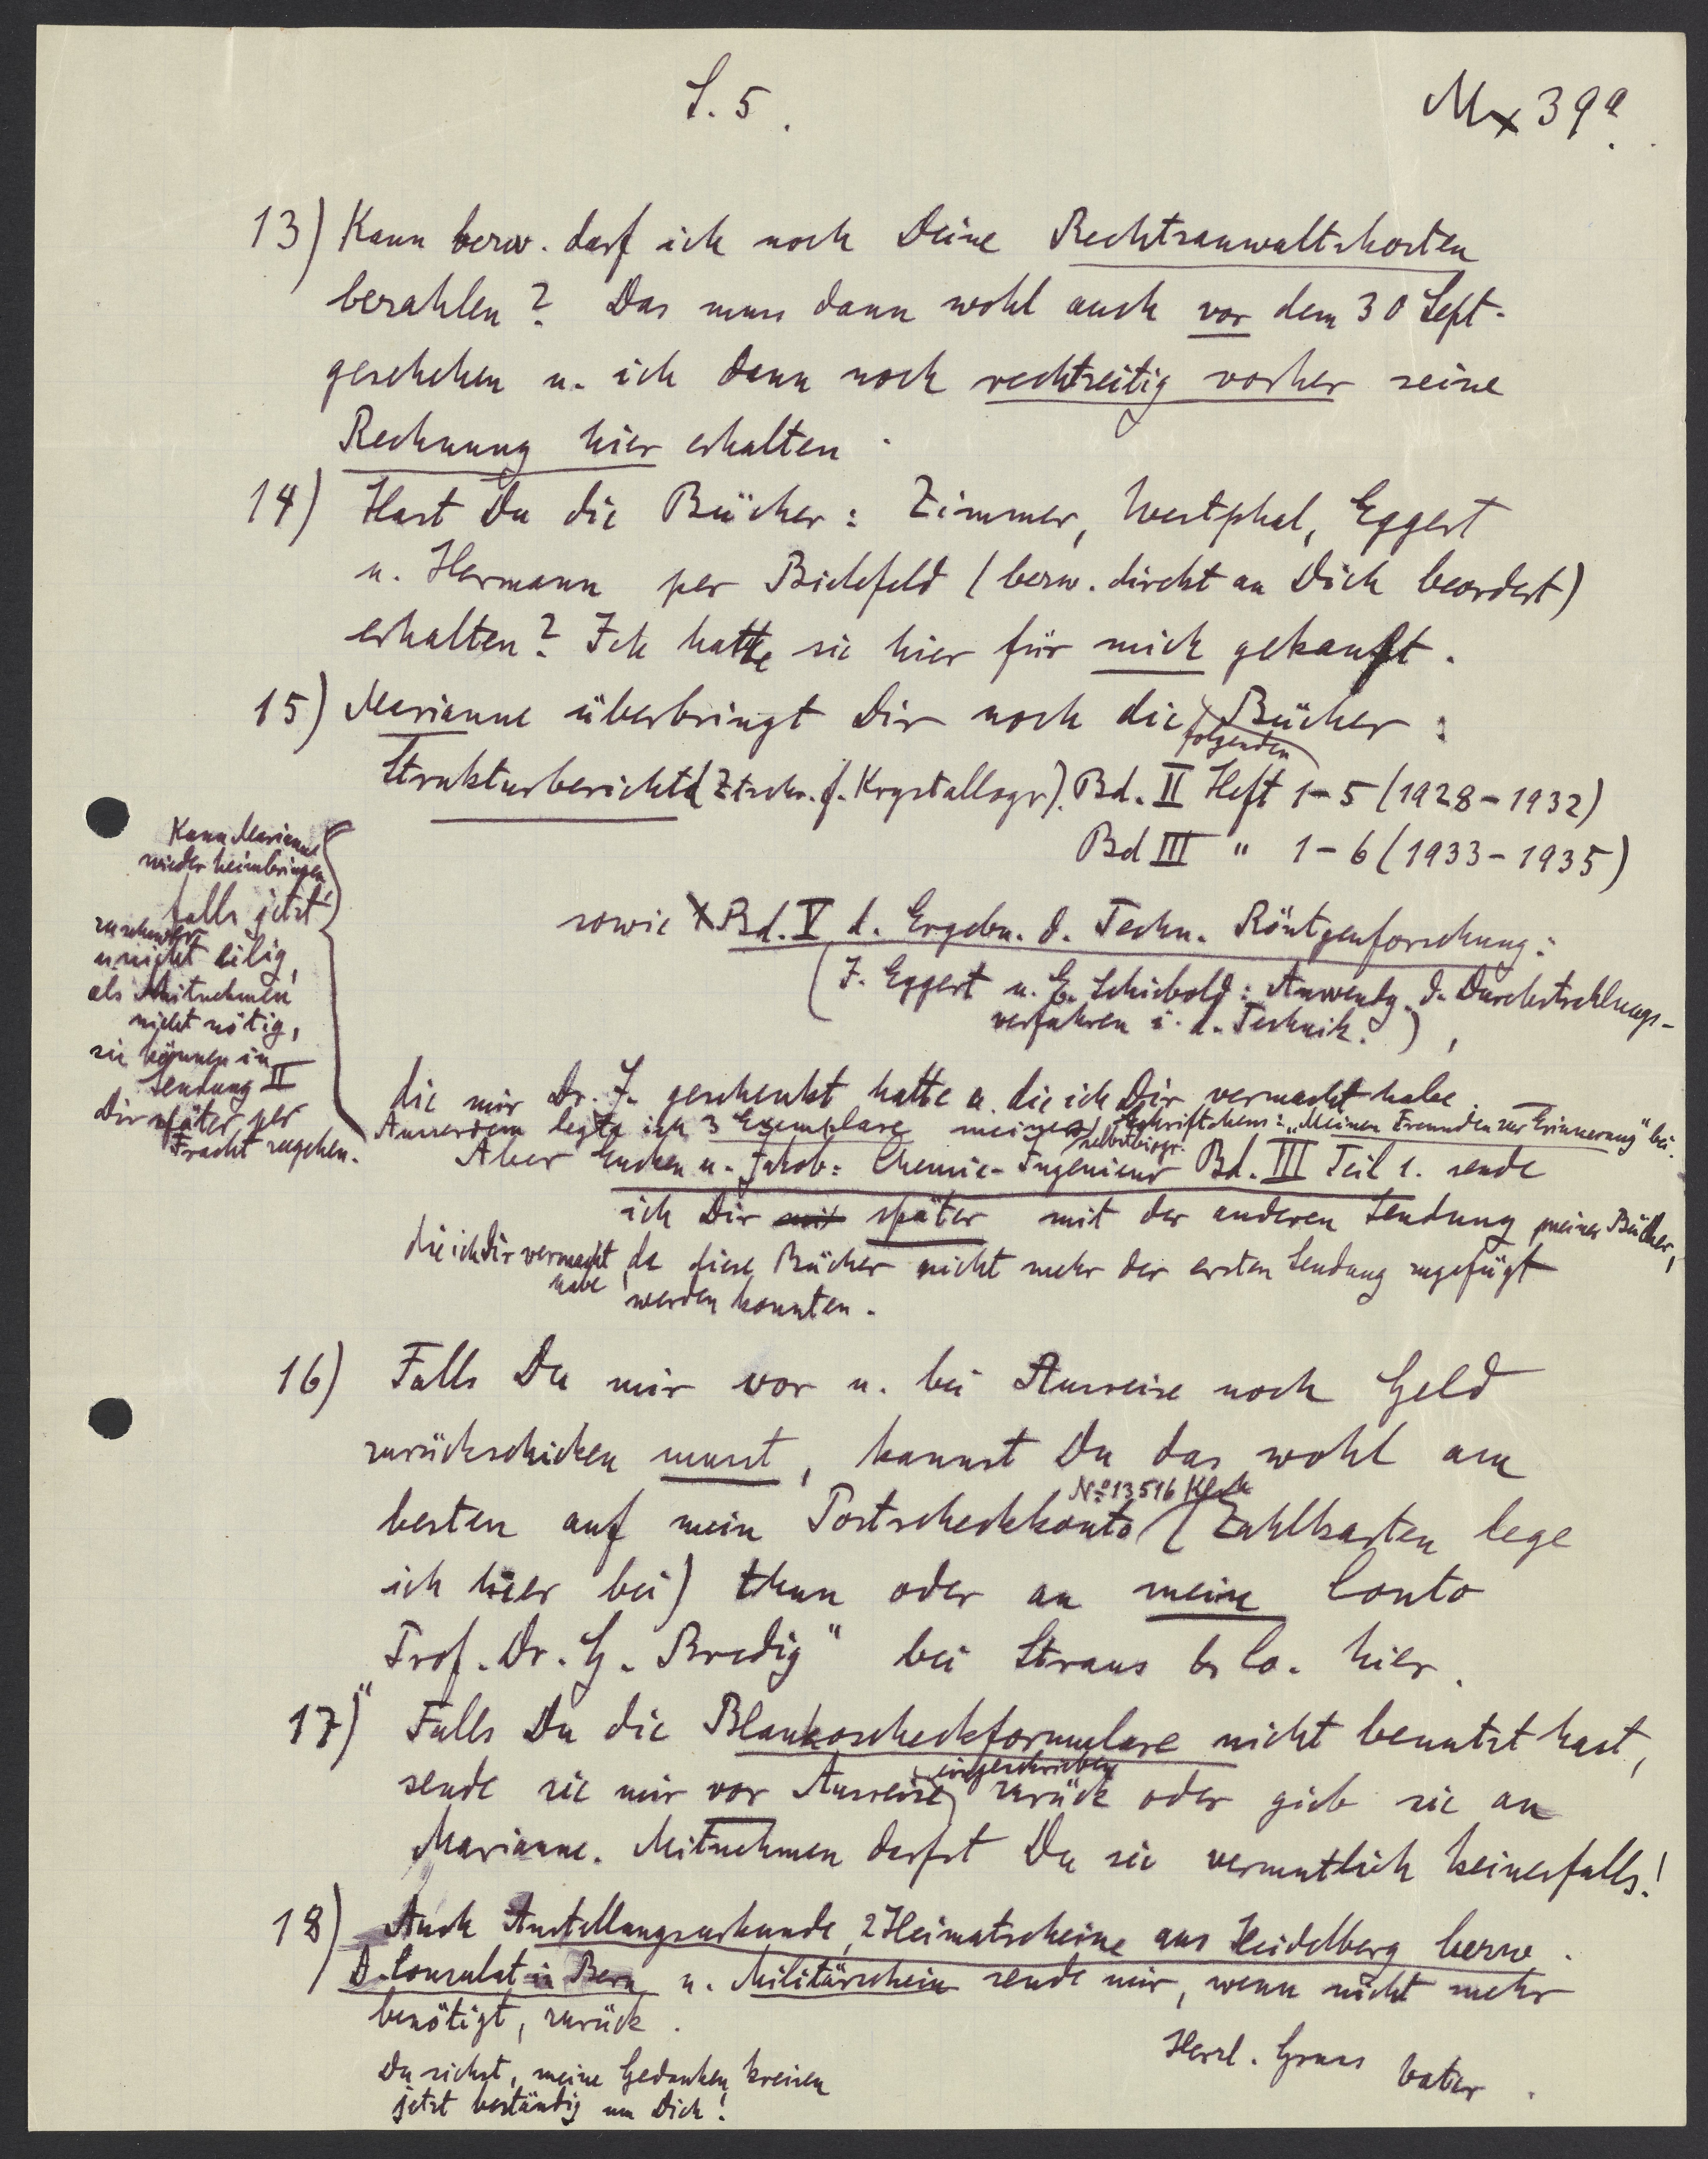 S. 5.
Mx 39a.
13) Kann bezw. darf ich noch Deine Rechtsanwaltskosten
bezahlen? Das muss dann wohl auch vor dem 30 Sept.
geschehen u. ich dann noch rechtzeitig vorher seine
Rechnung hier erhalten.
14) Hast Du die Bücher: Zimmer, Westphal, Eggert
u. Hermann per Bielefeld (bezw. direkt an Dich beordert)
erhalten? Ich hatte sie hier für mich gekauft.
15) Marianne überbringt Dir noch die folgenden Bücher:
Strukturbericht (Ztschr. f. Krystallogr). Bd. II Heft 1-5 (1928-1932)
Bd III " 1-6 (1933-1935)
sowie Bd. V d. Ergebn. d. Techn. Röntgenforschung:
(J. Eggert u. E. Schiebold: Anwendg. d. Durchstrahlungs-
verfahren i. d. Technik.),
die mir Dr. J. geschenkt hatte u. die ich Dir vermacht habe.
Kann Marianne
wieder heimbringen
falls jetzt
zu schwer
u nicht eilig,
als Mitnehmen
nicht nötig,
sie können in
Sendung II
Dir später per
Fracht zugehen.
Ausserdem legte ich 3 Exemplare meines selbstbiogr. Schriftchens: „Meinen Freunden zur Erinnerung" bei.
Aber Eucken u. Jakob: Chemie-Ingenieur Bd. III Teil 1. sende
ich Dir mit später mit der anderen Sendung meiner Bücher,
die ich Dir vermacht habe, da diese Bücher nicht mehr der ersten Sendung zugefügt
werden konnten.
16) Falls Du mir vor u. bei Ausreise noch Geld
zurückschicken musst, kannst Du das wohl am
besten auf mein Postscheckkonto No 13516 Klrh (Zahlkarten lege
ich hier bei) thun oder an mein Conto
„Prof. Dr. G. Bredig" bei Straus & Co. hier.
17) Falls Du die Blankoscheckformulare nicht benutzt hast,
sende sie mir vor Ausreise eingeschrieben zurück oder gieb sie an
Marianne. Mitnehmen darfst Du sie vermutlich keinesfalls!
18) Auch Anstellungsurkunde, 2 Heimatscheine aus Heidelberg bezw.
D. Consulat in Bern u. Militärschein sende mir, wenn nicht mehr
benötigt, zurück.
Herzl. Gruss Vater.
Du siehst, meine Gedanken kreisen
jetzt beständig um Dich!